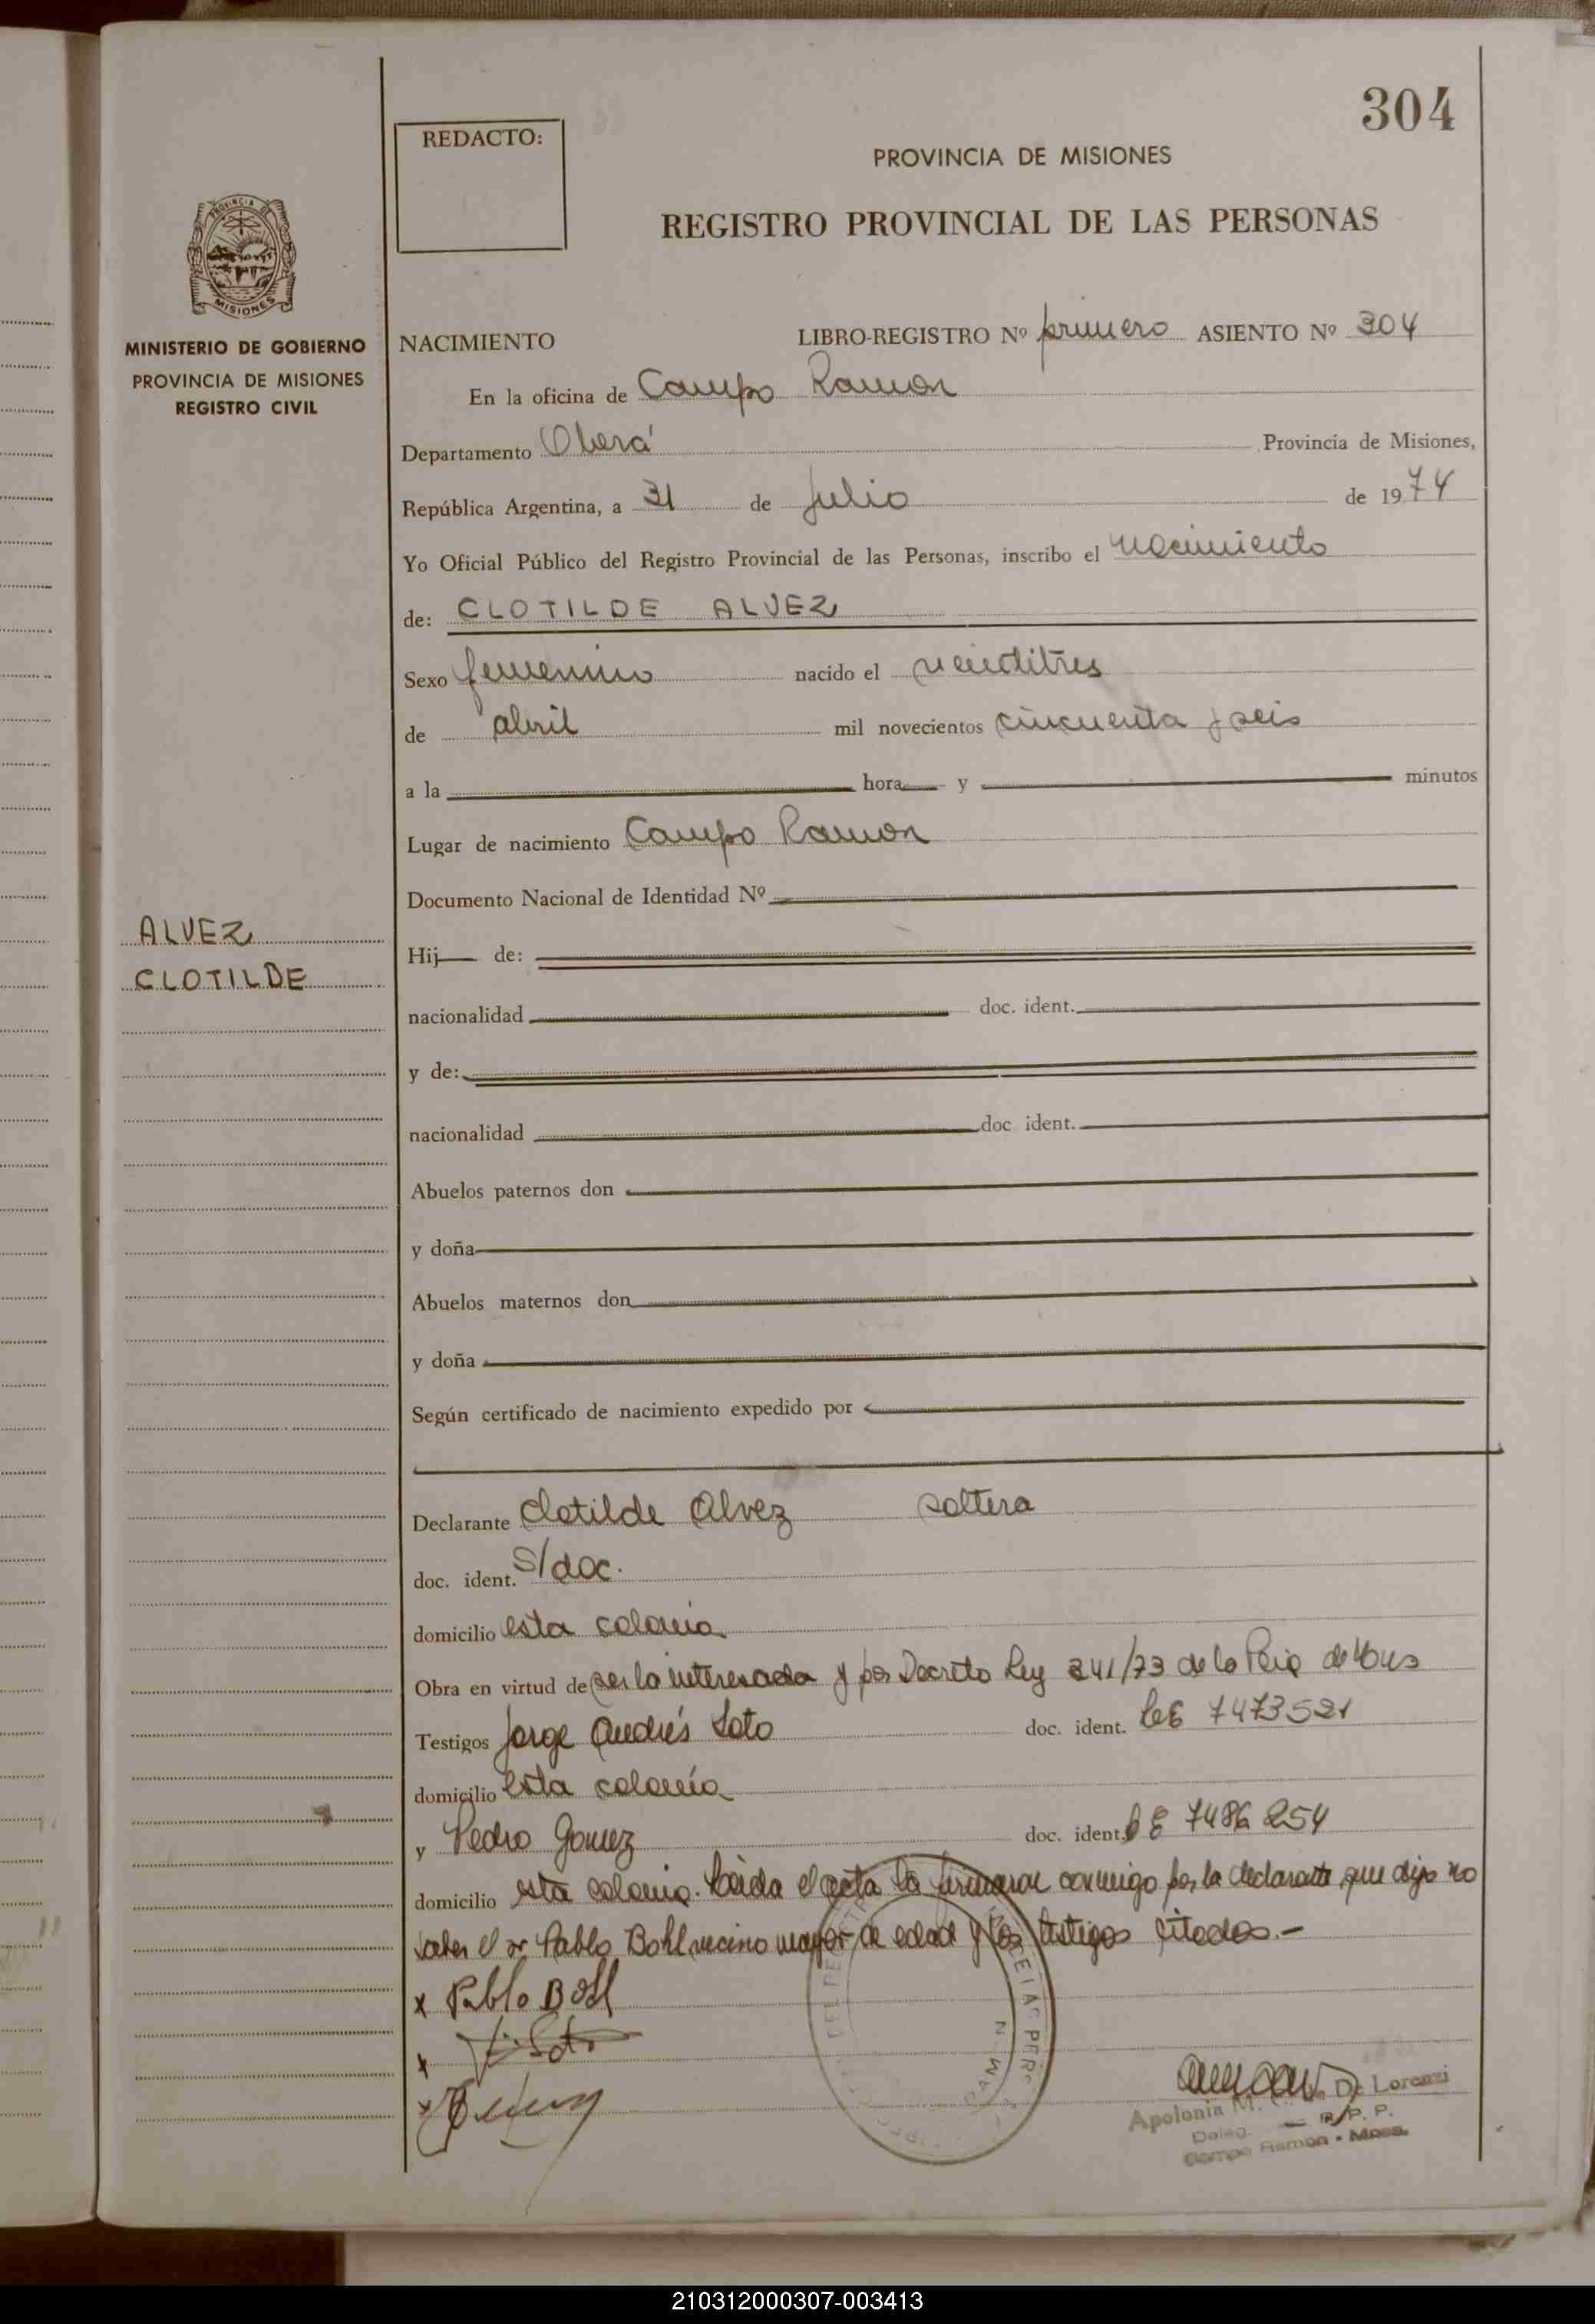 304
REDACTO:
PROVINCIA DE MISIONES
REGISTRO PROVINCIAL DE LAS PERSONAS
PROVINCIA DE
MISIONES
MINISTERIO DE GOBIERNO
PROVINCIA DE MISIONES
REGISTRO CIVIL
NACIMIENTO LIBRO-REGISTRO Nº primero ASIENTO Nº 304
En la oficina de Campo Ramon
Departamento Oberá Provincia de Misiones,
República Argentina, a 31 de Julio de 1974
Yo Oficial Público del Registro Provincial de las Personas, inscribo el nacimiento
de: CLOTILDE ALVEZ
Sexo femenino nacido el veintitres
de abril mil novecientos cincuenta y seis
a la hora y minutos
Lugar de nacimiento Campo Ramon
Documento Nacional de Identidad Nº
ALVEZ
CLOTILDE
Hij de:
nacionalidad doc. ident.
y de:
nacionalidad doc ident.
Abuelos paternos don
y doña
Abuelos maternos don
y doña
Según certificado de nacimiento expedido por
Declarante Clotilde Alvez soltera
doc. ident. S/doc.
domicilio esta colonia
Obra en virtud de ser la interesada y por Decreto Ley 241/73 de la Pcia de
Testigos Jorge Andrés Soto doc. ident. LE 7473521
domicilio esta colonia
y Pedro Gomez doc. ident. LE 7486254
domicilio esta colonia. Leida el acta la firmaron conmigo por la declarante que dijo no
saber el sr Pablo Bohl vecino mayor de edad y los testigos citados.-
x Pablo Bohl
x J. Soto
x
Apolonia M. De Lorenzi
Deleg. R.P.P.
Campo Ramon - Mnes.
210312000307-003413